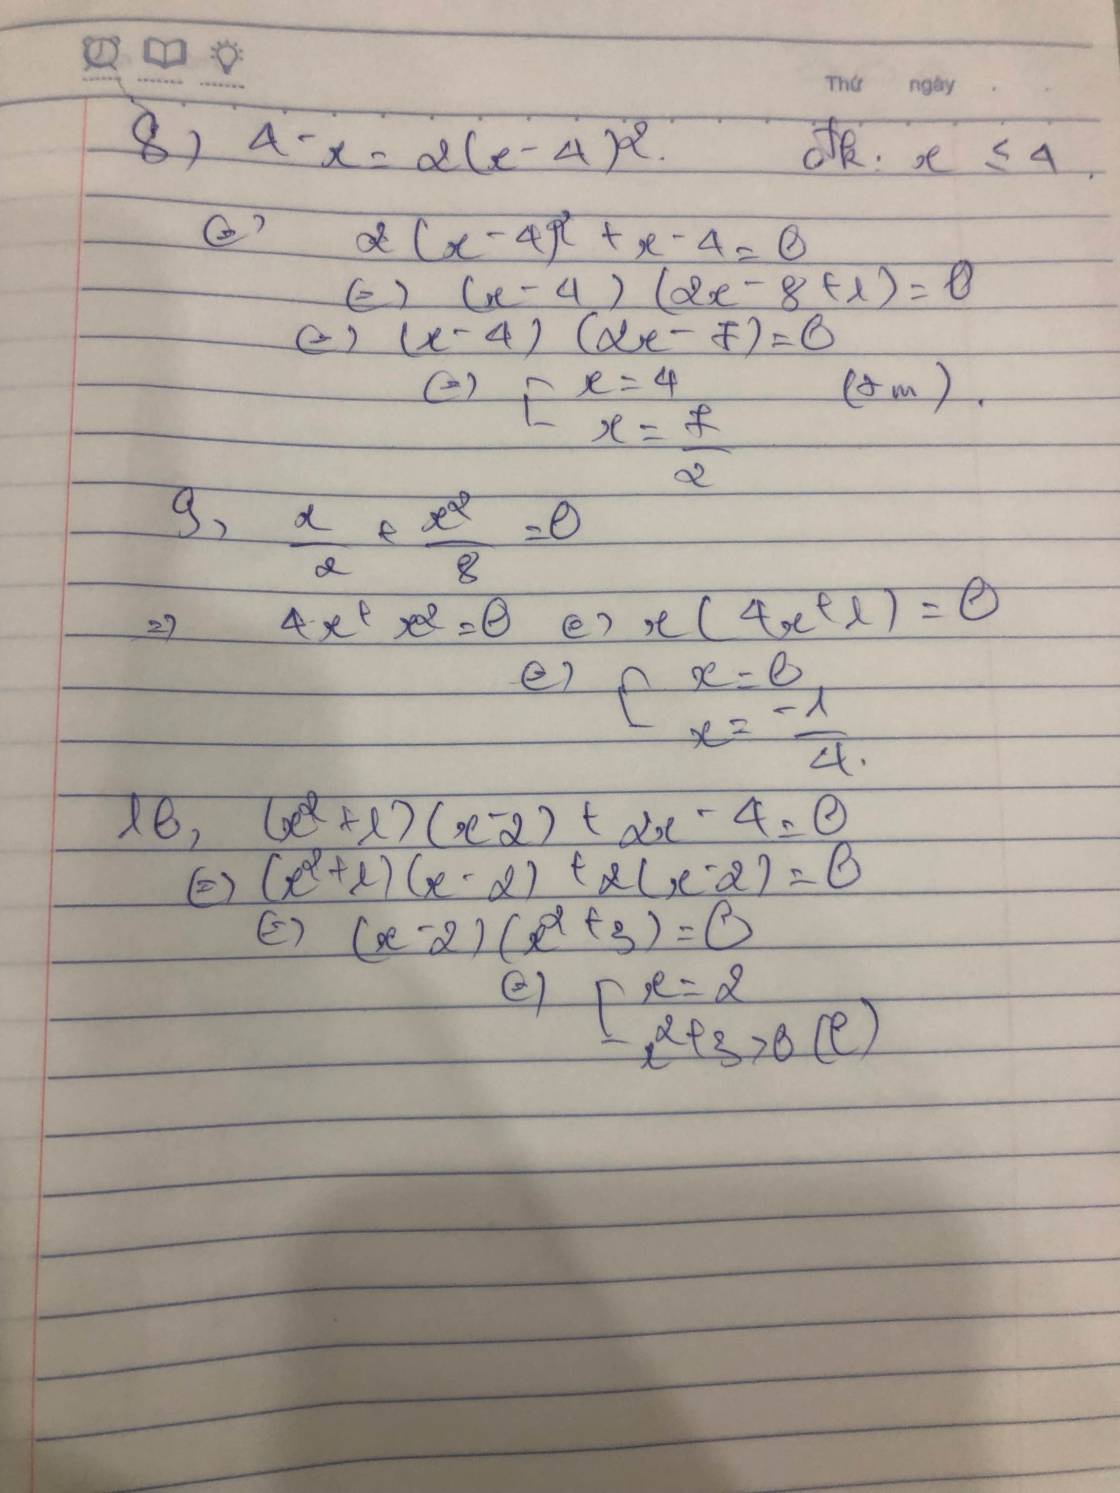 Thứ ngày
8) 4 - x = 2(x - 4)². đk: x ≤ 4.
(=) 2(x - 4)² + x - 4 = 0
(=) (x - 4) (2x - 8 + 1) = 0
(=) (x - 4) (2x - 7) = 0
(=) [ x = 4 (tm).
x = 7/2
9, x/2 + x²/8 = 0
=) 4x + x² = 0 (=) x(4x + 1) = 0
(=) [ x = 0
x = -1/4.
10, (x² + 1)(x - 2) + 2x - 4 = 0
(=) (x² + 1)(x - 2) + 2(x - 2) = 0
(=) (x - 2)(x² + 3) = 0
(=) [ x = 2
x² + 3 > 0 (l)